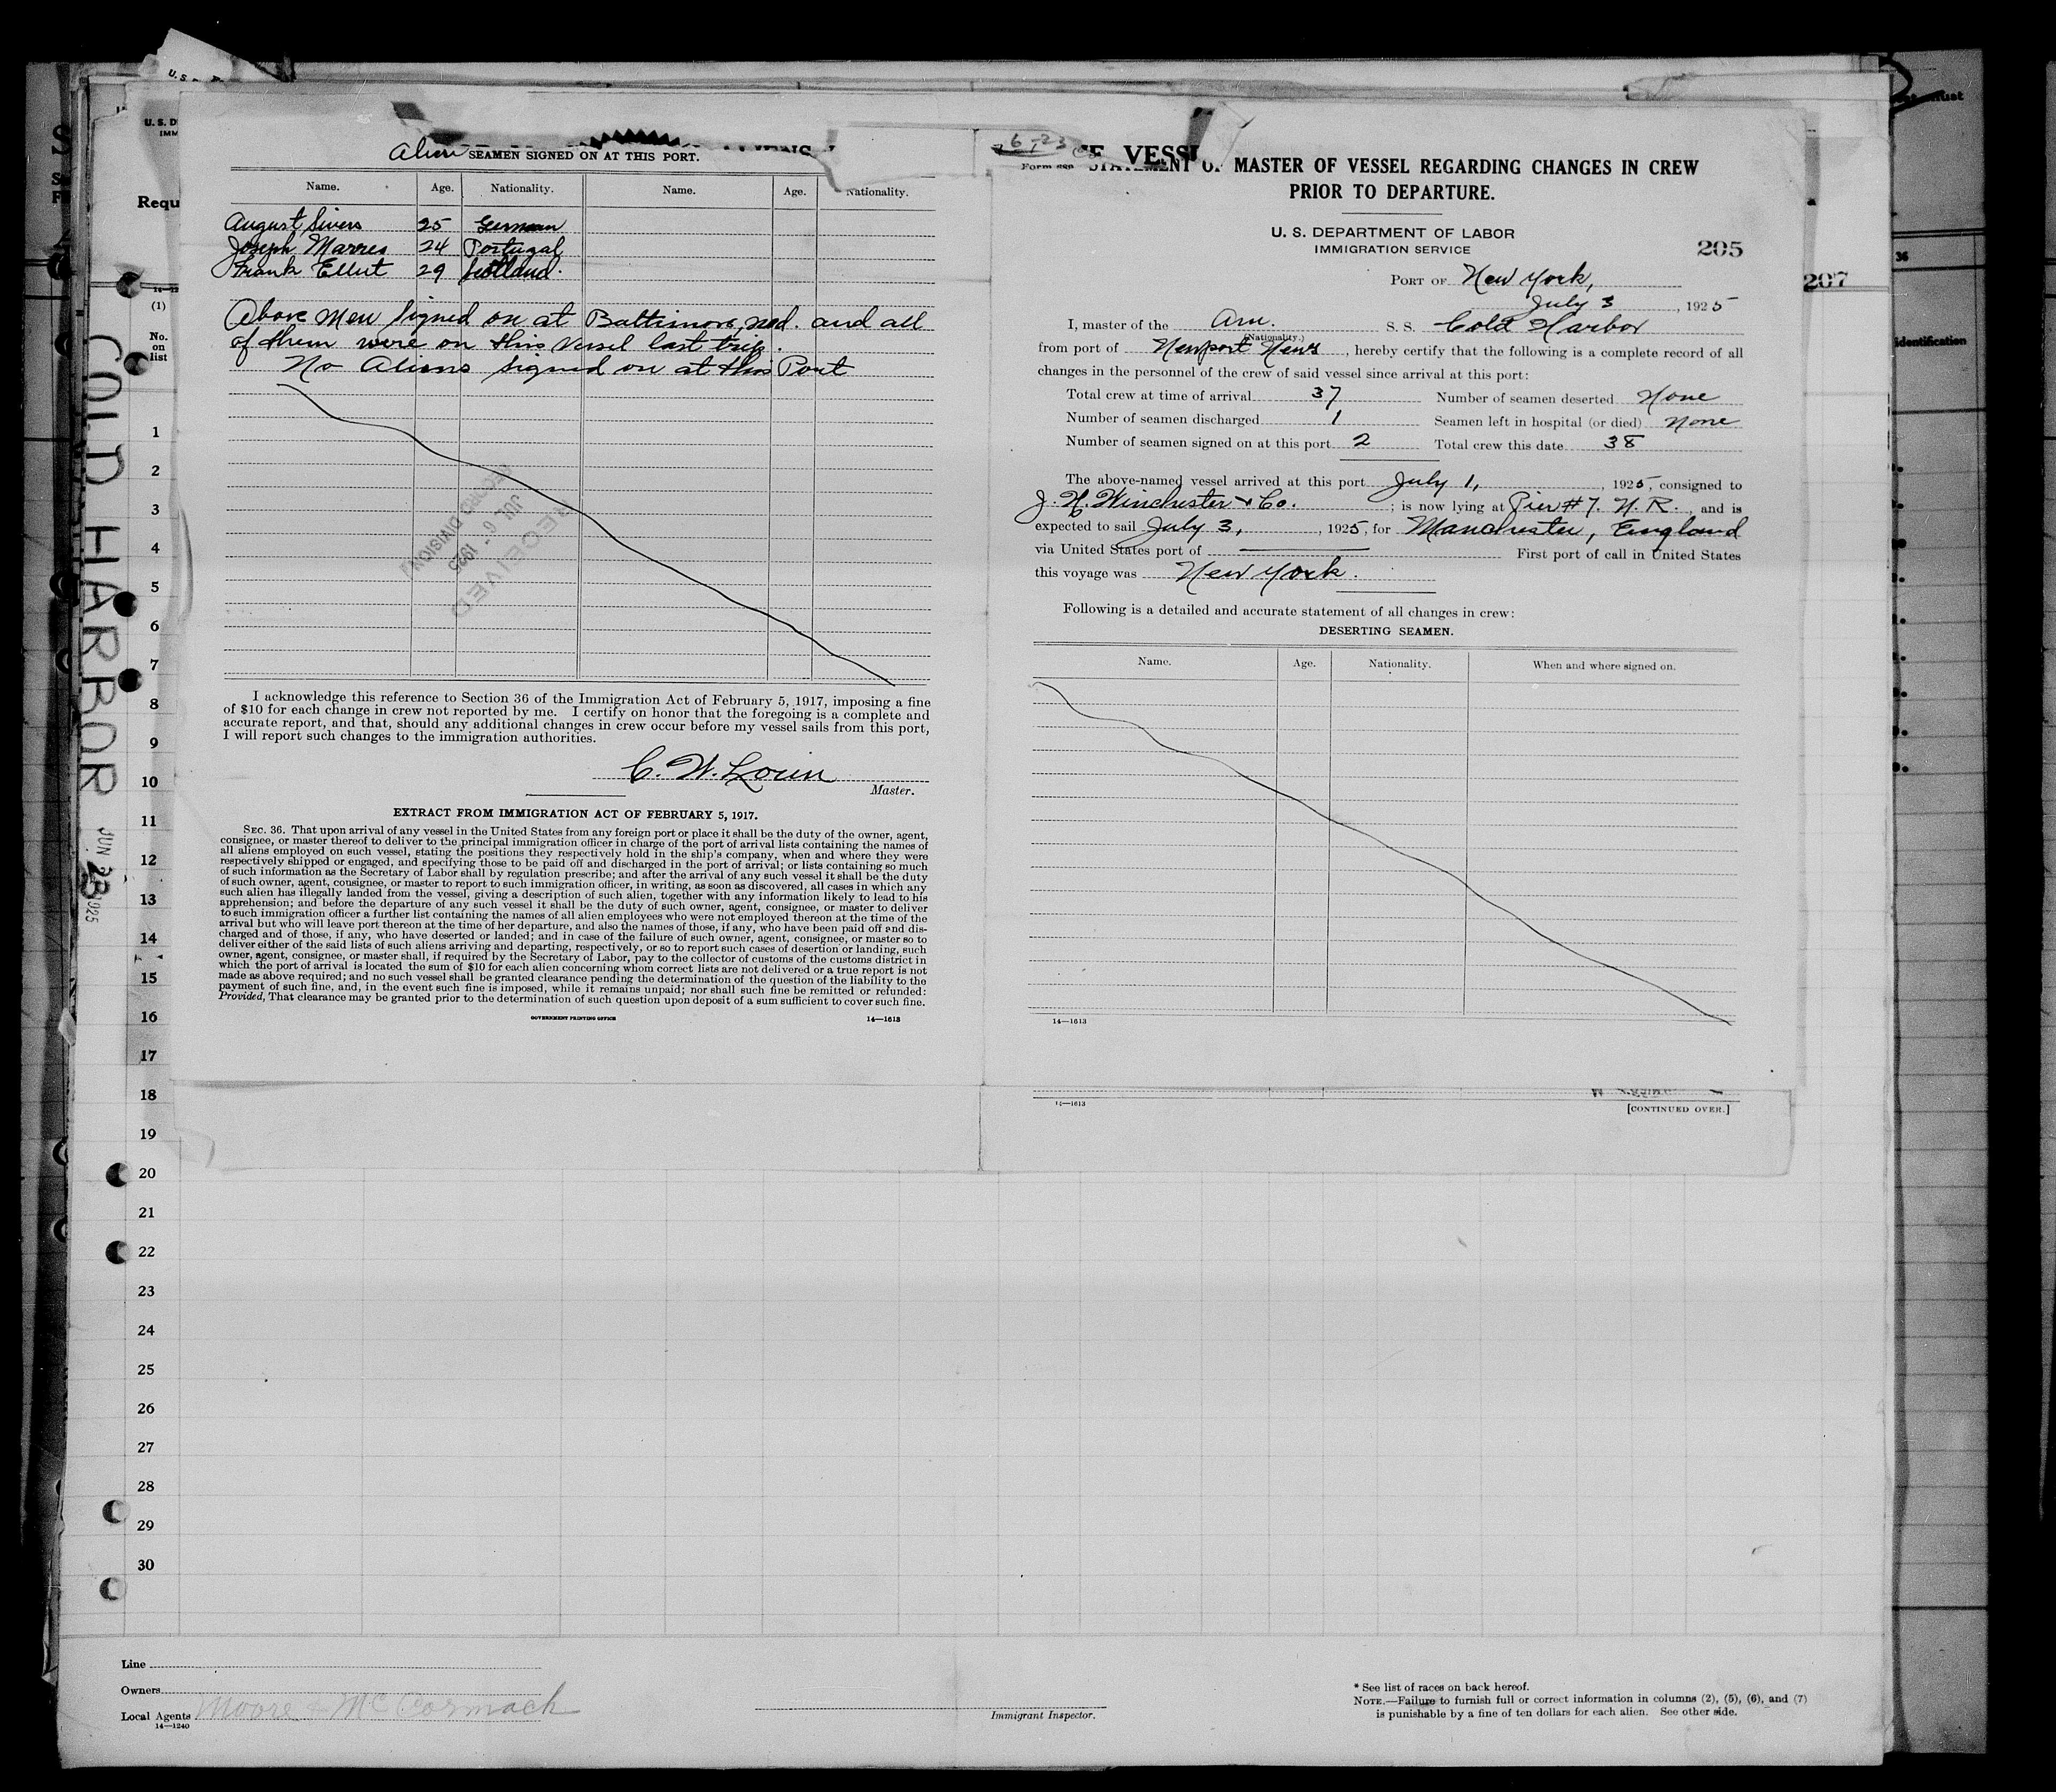 Alien SEAMEN SIGNED ON AT THIS PORT.
Name. Age. Nationality. Name. Age. Nationality.
August Sivers 25 German
Joseph Marres 24 Portugal
Frank 29 Scotland.
Above Men signed on at Baltimore, Md. and all
of them were on this vessel last trip.
No Aliens signed on at this Port
RECEIVED
JUL 6 - 1925
RECORD DIVISION
I acknowledge this reference to Section 36 of the Immigration Act of February 5, 1917, imposing a fine
of $10 for each change in crew not reported by me. I certify on honor that the foregoing is a complete and
accurate report, and that, should any additional changes in crew occur before my vessel sails from this port,
I will report such changes to the immigration authorities.
C. W.
Master.
EXTRACT FROM IMMIGRATION ACT OF FEBRUARY 5, 1917.
SEC. 36. That upon arrival of any vessel in the United States from any foreign port or place it shall be the duty of the owner, agent,
consignee, or master thereof to deliver to the principal immigration officer in charge of the port of arrival lists containing the names of
all aliens employed on such vessel, stating the positions they respectively hold in the ship's company, when and where they were
respectively shipped or engaged, and specifying those to be paid off and discharged in the port of arrival; or lists containing so much
of such information as the Secretary of Labor shall by regulation prescribe; and after the arrival of any such vessel it shall be the duty
of such owner, agent, consignee, or master to report to such immigration officer, in writing, as soon as discovered, all cases in which any
such alien has illegally landed from the vessel, giving a description of such alien, together with any information likely to lead to his
apprehension; and before the departure of any such vessel it shall be the duty of such owner, agent, consignee, or master to deliver
to such immigration officer a further list containing the names of all alien employees who were not employed thereon at the time of the
arrival but who will leave port thereon at the time of her departure, and also the names of those, if any, who have been paid off and dis-
charged and of those, if any, who have deserted or landed; and in case of the failure of such owner, agent, consignee, or master so to
deliver either of the said lists of such aliens arriving and departing, respectively, or so to report such cases of desertion or landing, such
owner, agent, consignee, or master shall, if required by the Secretary of Labor, pay to the collector of customs of the customs district in
which the port of arrival is located the sum of $10 for each alien concerning whom correct lists are not delivered or a true report is not
made as above required; and no such vessel shall be granted clearance pending the determination of the question of the liability to the
payment of such fine, and, in the event such fine is imposed, while it remains unpaid; nor shall such fine be remitted or refunded:
Provided, That clearance may be granted prior to the determination of such question upon deposit of a sum sufficient to cover such fine.
GOVERNMENT PRINTING OFFICE 14—1613
STATEMENT OF MASTER OF VESSEL REGARDING CHANGES IN CREW
PRIOR TO DEPARTURE.
U. S. DEPARTMENT OF LABOR
IMMIGRATION SERVICE
205
PORT OF New York,
July 3, 1925
I, master of the Am. S. S. Cold Harbor
(Nationality.)
from port of Newport News, hereby certify that the following is a complete record of all
changes in the personnel of the crew of said vessel since arrival at this port:
Total crew at time of arrival 37 Number of seamen deserted None
Number of seamen discharged 1 Seamen left in hospital (or died) None
Number of seamen signed on at this port 2 Total crew this date 38
The above-named vessel arrived at this port July 1, 1925, consigned to
J. H. Winchester & Co.; is now lying at Pier # 7. N. R., and is
expected to sail July 3, 1925, for Manchester, England
via United States port of First port of call in United States
this voyage was New York.
Following is a detailed and accurate statement of all changes in crew:
DESERTING SEAMEN.
Name. Age. Nationality. When and where signed on.
14—1613
14—1613
[CONTINUED OVER.]
207
36
identification
U. S. D
IMM
Requ
(1)
No.
on
list
COLD HARBOR
JUN 23 1925
1
2
3
4
5
6
7
8
9
10
11
12
13
14
15
16
17
18
19
20
21
22
23
24
25
26
27
28
29
30
Line
Owners
Local Agents Moore & McCormack
14—1240
Immigrant Inspector.
* See list of races on back hereof.
NOTE.—Failure to furnish full or correct information in columns (2), (5), (6), and (7)
is punishable by a fine of ten dollars for each alien. See other side.